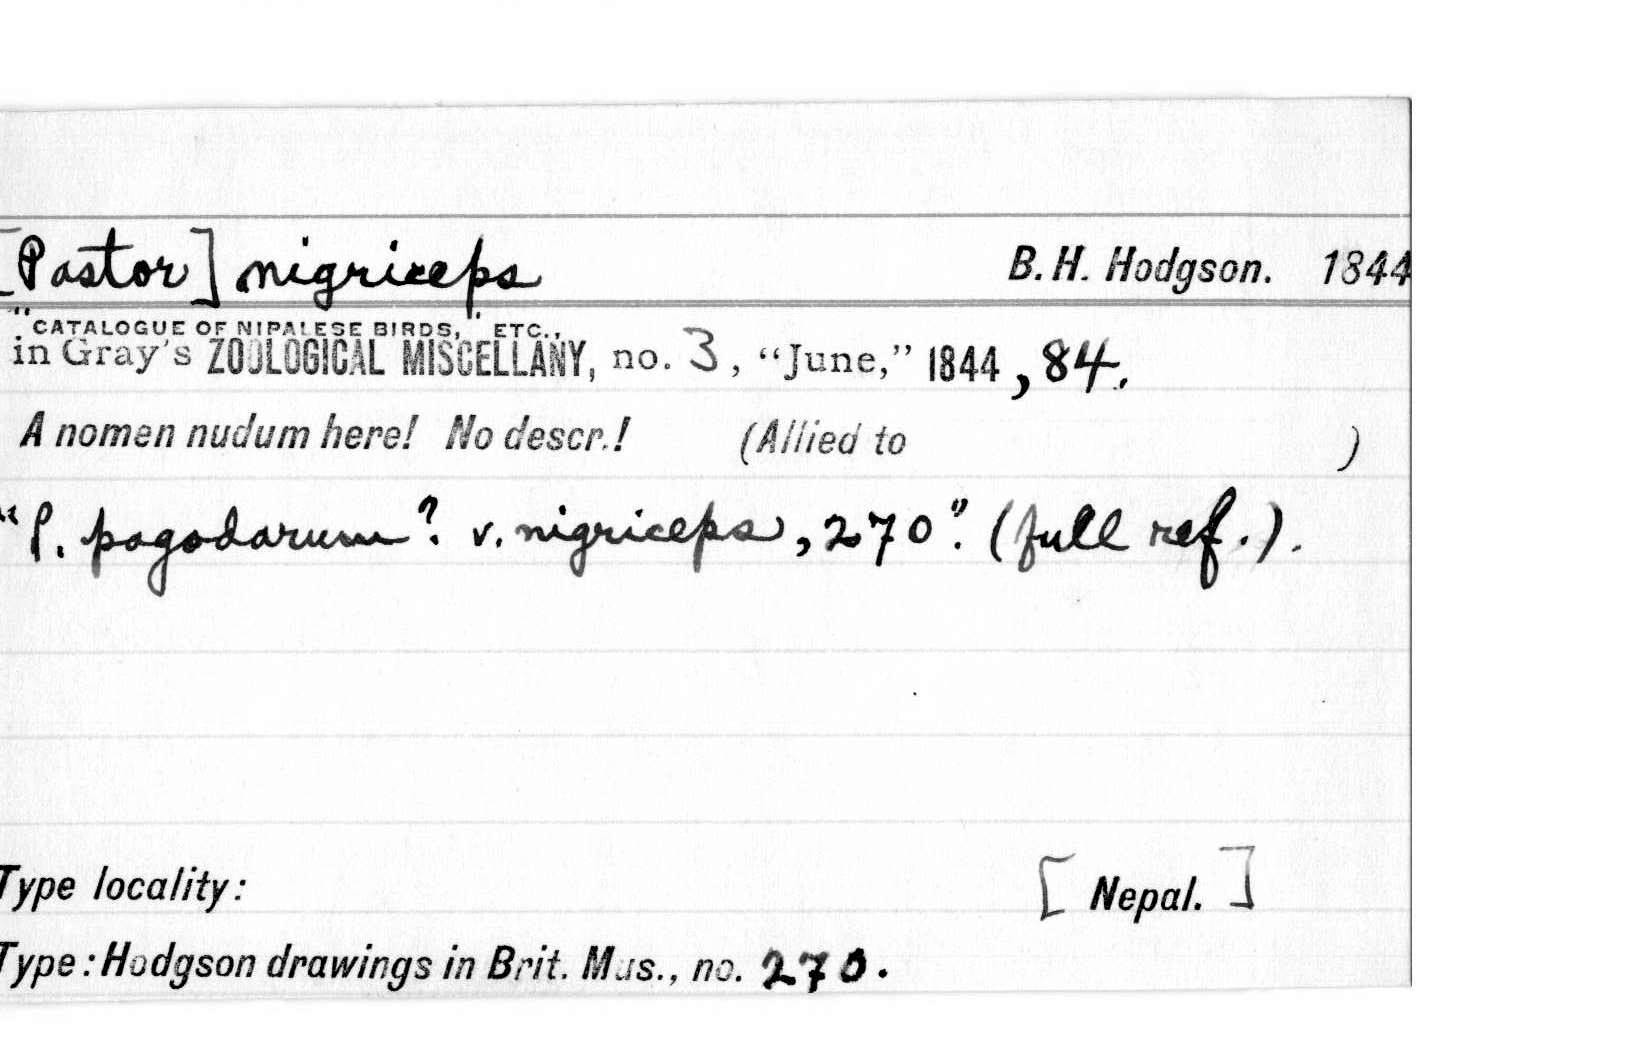 [Pastor] nigriceps B. H. Hodgson. 1844
"CATALOGUE OF NIPALESE BIRDS," ETC.,
in Gray's ZOOLOGICAL MISCELLANY, no. 3, “June,” 1844, 84.
A nomen nudum here! No descr.! (Allied to )
“P. pagodarum? v. nigriceps, 270”. (full ref.).
Type locality: [Nepal.]
Type: Hodgson drawings in Brit. Mus., no. 270.